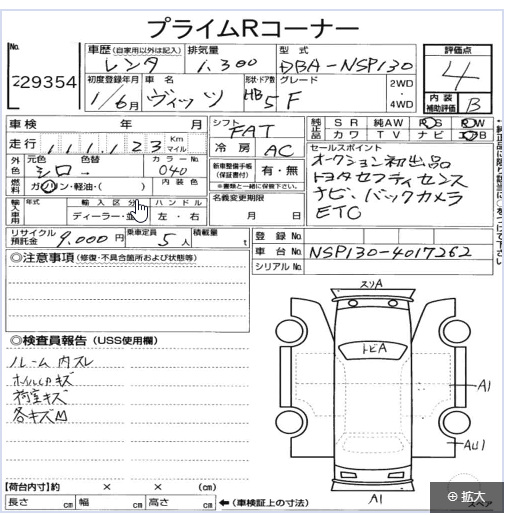 プライムRコーナー
No.
229354
車歴 (自家用以外は記入)
レンタ
排気量
1,300
型式
DBA-NSP130
評価点
4
内装
補助評価
B
初度登録年月
1/6月
車名
ヴィッツ
形状・ドア数
HB 5
グレード
F
2WD
・
4WD
車検 年 月
走行 111,123 Km マイル
シフト
FAT
純正品
SR 純AW PS PW
カワ TV ナビ エアB
外色
元色 色替
シロ→
カラーNo.
040
冷房 AC
セールスポイント
オークション初出品
トヨタセフティセンス
ナビ、バックカメラ
ETC
燃料
ガソリン・軽油・( )
内装色
新車整備手帳
(保証書付)
有・無
※書類と一緒に保管下さい。
輸入車用
年式
輸入区分
ディーラー・並
ハンドル
左・右
名義変更期限
月 日
リサイクル
預託金
9,000円
乗車定員
5人
積載量
t
登録No.
車台No. NSP130-4017262
シリアルNo.
◎注意事項 (修復・不具合箇所および状態等)
◎検査員報告 (USS使用欄)
ルーム内スレ
荷室キズ
各キズ
スリA
トビA
A1
AU1
A1
【荷台内寸】約 × × (cm)
長さ cm 幅 cm 高さ cm
←(車検証上の寸法)
スペア
拡大